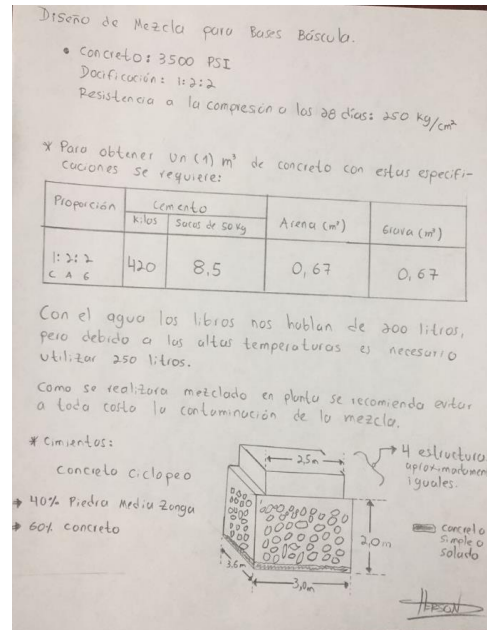 Diseño de Mezcla para Bases Báscula.
• Concreto: 3500 PSI
Docificación: 1:2:2
Resistencia a la compresión a los 28 días: 250 kg/cm²
* Para obtener un (1) m³ de concreto con estas especifi-
caciones se requiere:
Proporción
Cemento
Kilos
Sacos de 50 kg
Arena (m³)
Grava (m³)
1:2:2
C A G
420
8,5
0,67
0,67
Con el agua los libros nos hablan de 200 litros,
pero debido a las altas temperaturas es necesario
utilizar 250 litros.
Como se realizara mezclado en planta se recomienda evitar
a toda costa la contaminación de la mezcla.
* Cimientos:
Concreto Ciclopeo
→ 40% Piedra Media Zonga
→ 60% Concreto
2,5m
4 estructura
aproximadamen
iguales.
2,0m
3,6m
3,0m
concreto
simple o
solado